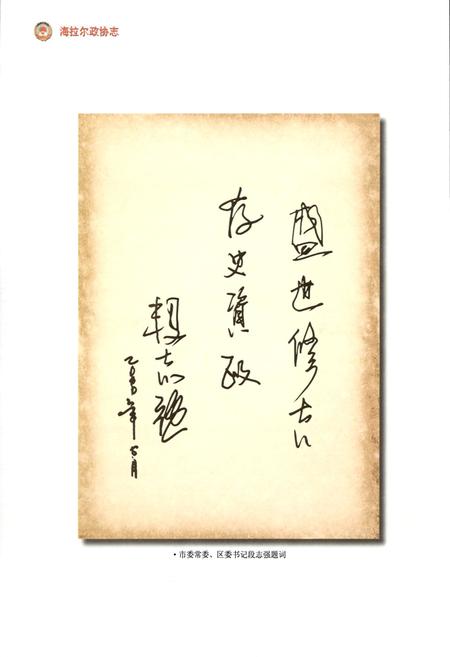 海拉尔政协志
盛世修志
存史資政
段志强
二〇〇六年六月
·市委常委、区委书记段志强题词